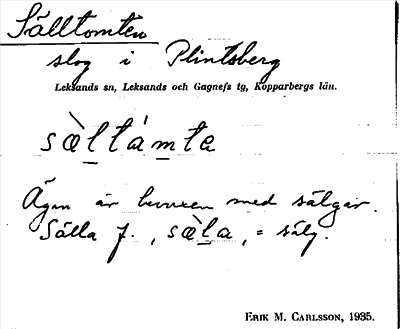 Sälltomten
slog i Plintsberg
Leksands sn, Leksands och Gagnefs tg, Kopparbergs län.
sæ̀ltåmta
Ägan är bevuxen med sälgar.
Sälla f., sæ̀la, = sälg.
ERIK M. CARLSSON, 1935.